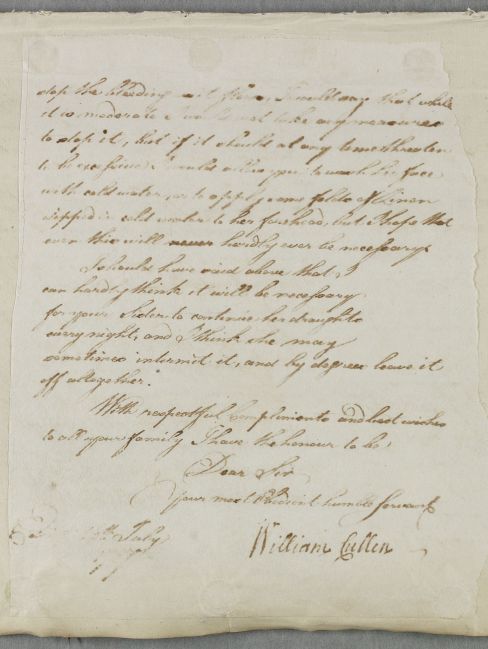 stop the bleeding I would say that while
it is moderate I would not take any measures
to stop it, but if it should at any time threaten
to be excessive I would advise you to wash her face
with cold water, or to apply some folds of Linen
dipped in cold water to her forhead, but I hope that
even this will never hardly ever be necessary.
I should have said above that, I
can hardly think it will be necessary
for your Sister to continue her draught
every night, and I think she may
sometimes intermit it, and by degrees leave it
off altogether.
With respectful Compliments and best wishes
to all your family I have the honour to be
Dear Sir
Your most Obedient humble servant
July
William Cullen